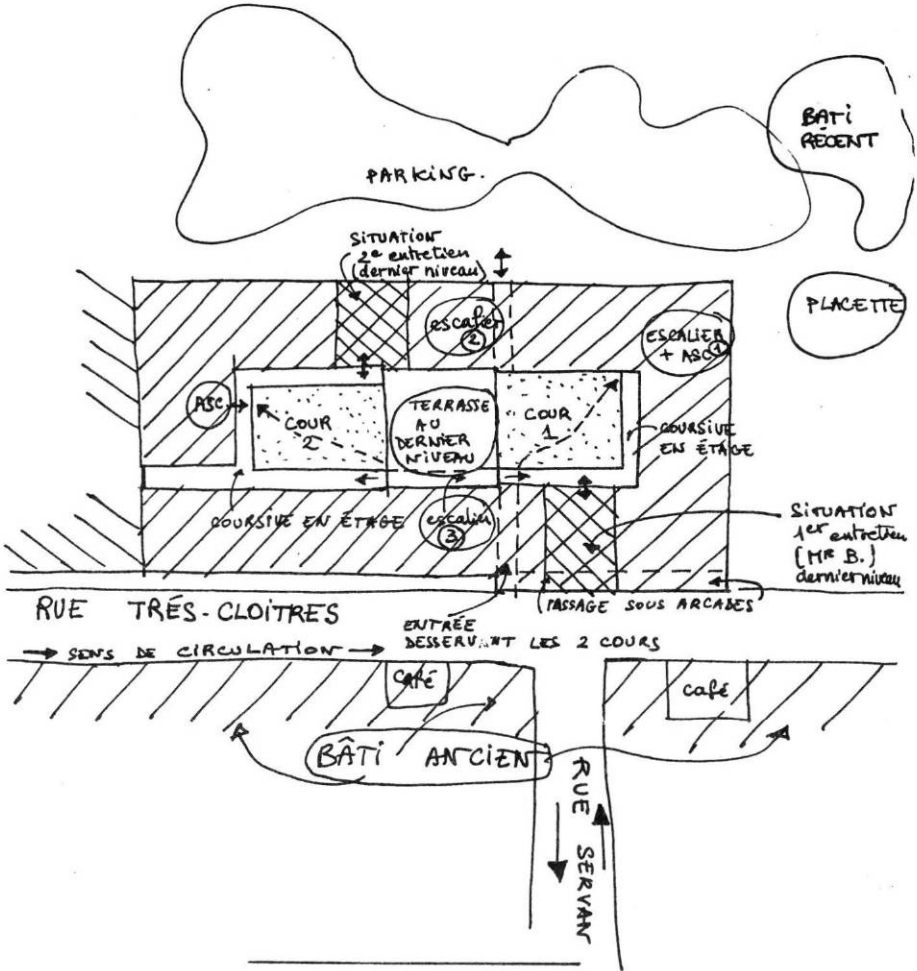 BATI
RÉCENT
PARKING.
SITUATION
2e entretien
(dernier niveau)
PLACETTE
escalier
2
ESCALIER
+ ASC 1
ASC
COUR
2
TERRASSE
AU
DERNIER
NIVEAU
COUR
1
COURSIVE
EN ÉTAGE
COURSIVE EN ÉTAGE
escalier
3
SITUATION
1er entretien
(MR B.)
dernier niveau
RUE TRÉS-CLOITRES
PASSAGE SOUS ARCADES
ENTRÉE
DESSERVANT LES 2 COURS
SENS DE CIRCULATION
CAFÉ
café
BÂTI ANCIEN
RUE SERVAN